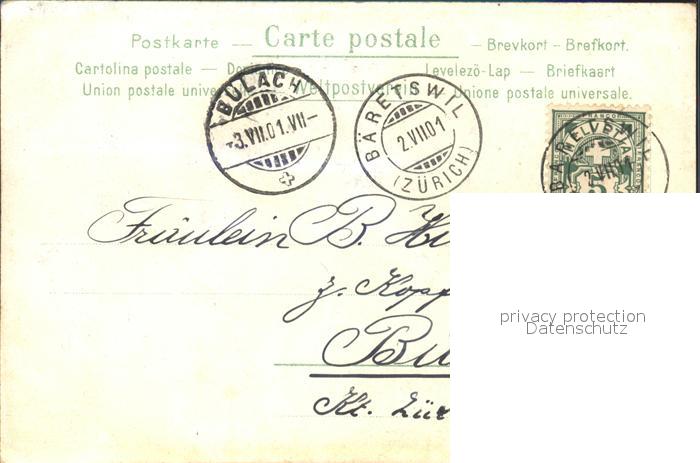 Postkarte — Carte postale — Brevkort - Brefkort.
Cartolina postale — — Levelezö-Lap — Briefkaart
Union postale univer Weltpostverein Unione postale universale.
BÜLACH
-3.VII.01.VII-
BÄRETSWIL
2.VII.01
(ZÜRICH)
FRANCO
HELVETIA
5
BÄRE
Fräulein B. Hu
z. Kopp
Bü
Kt. Zür
privacy protection
Datenschutz